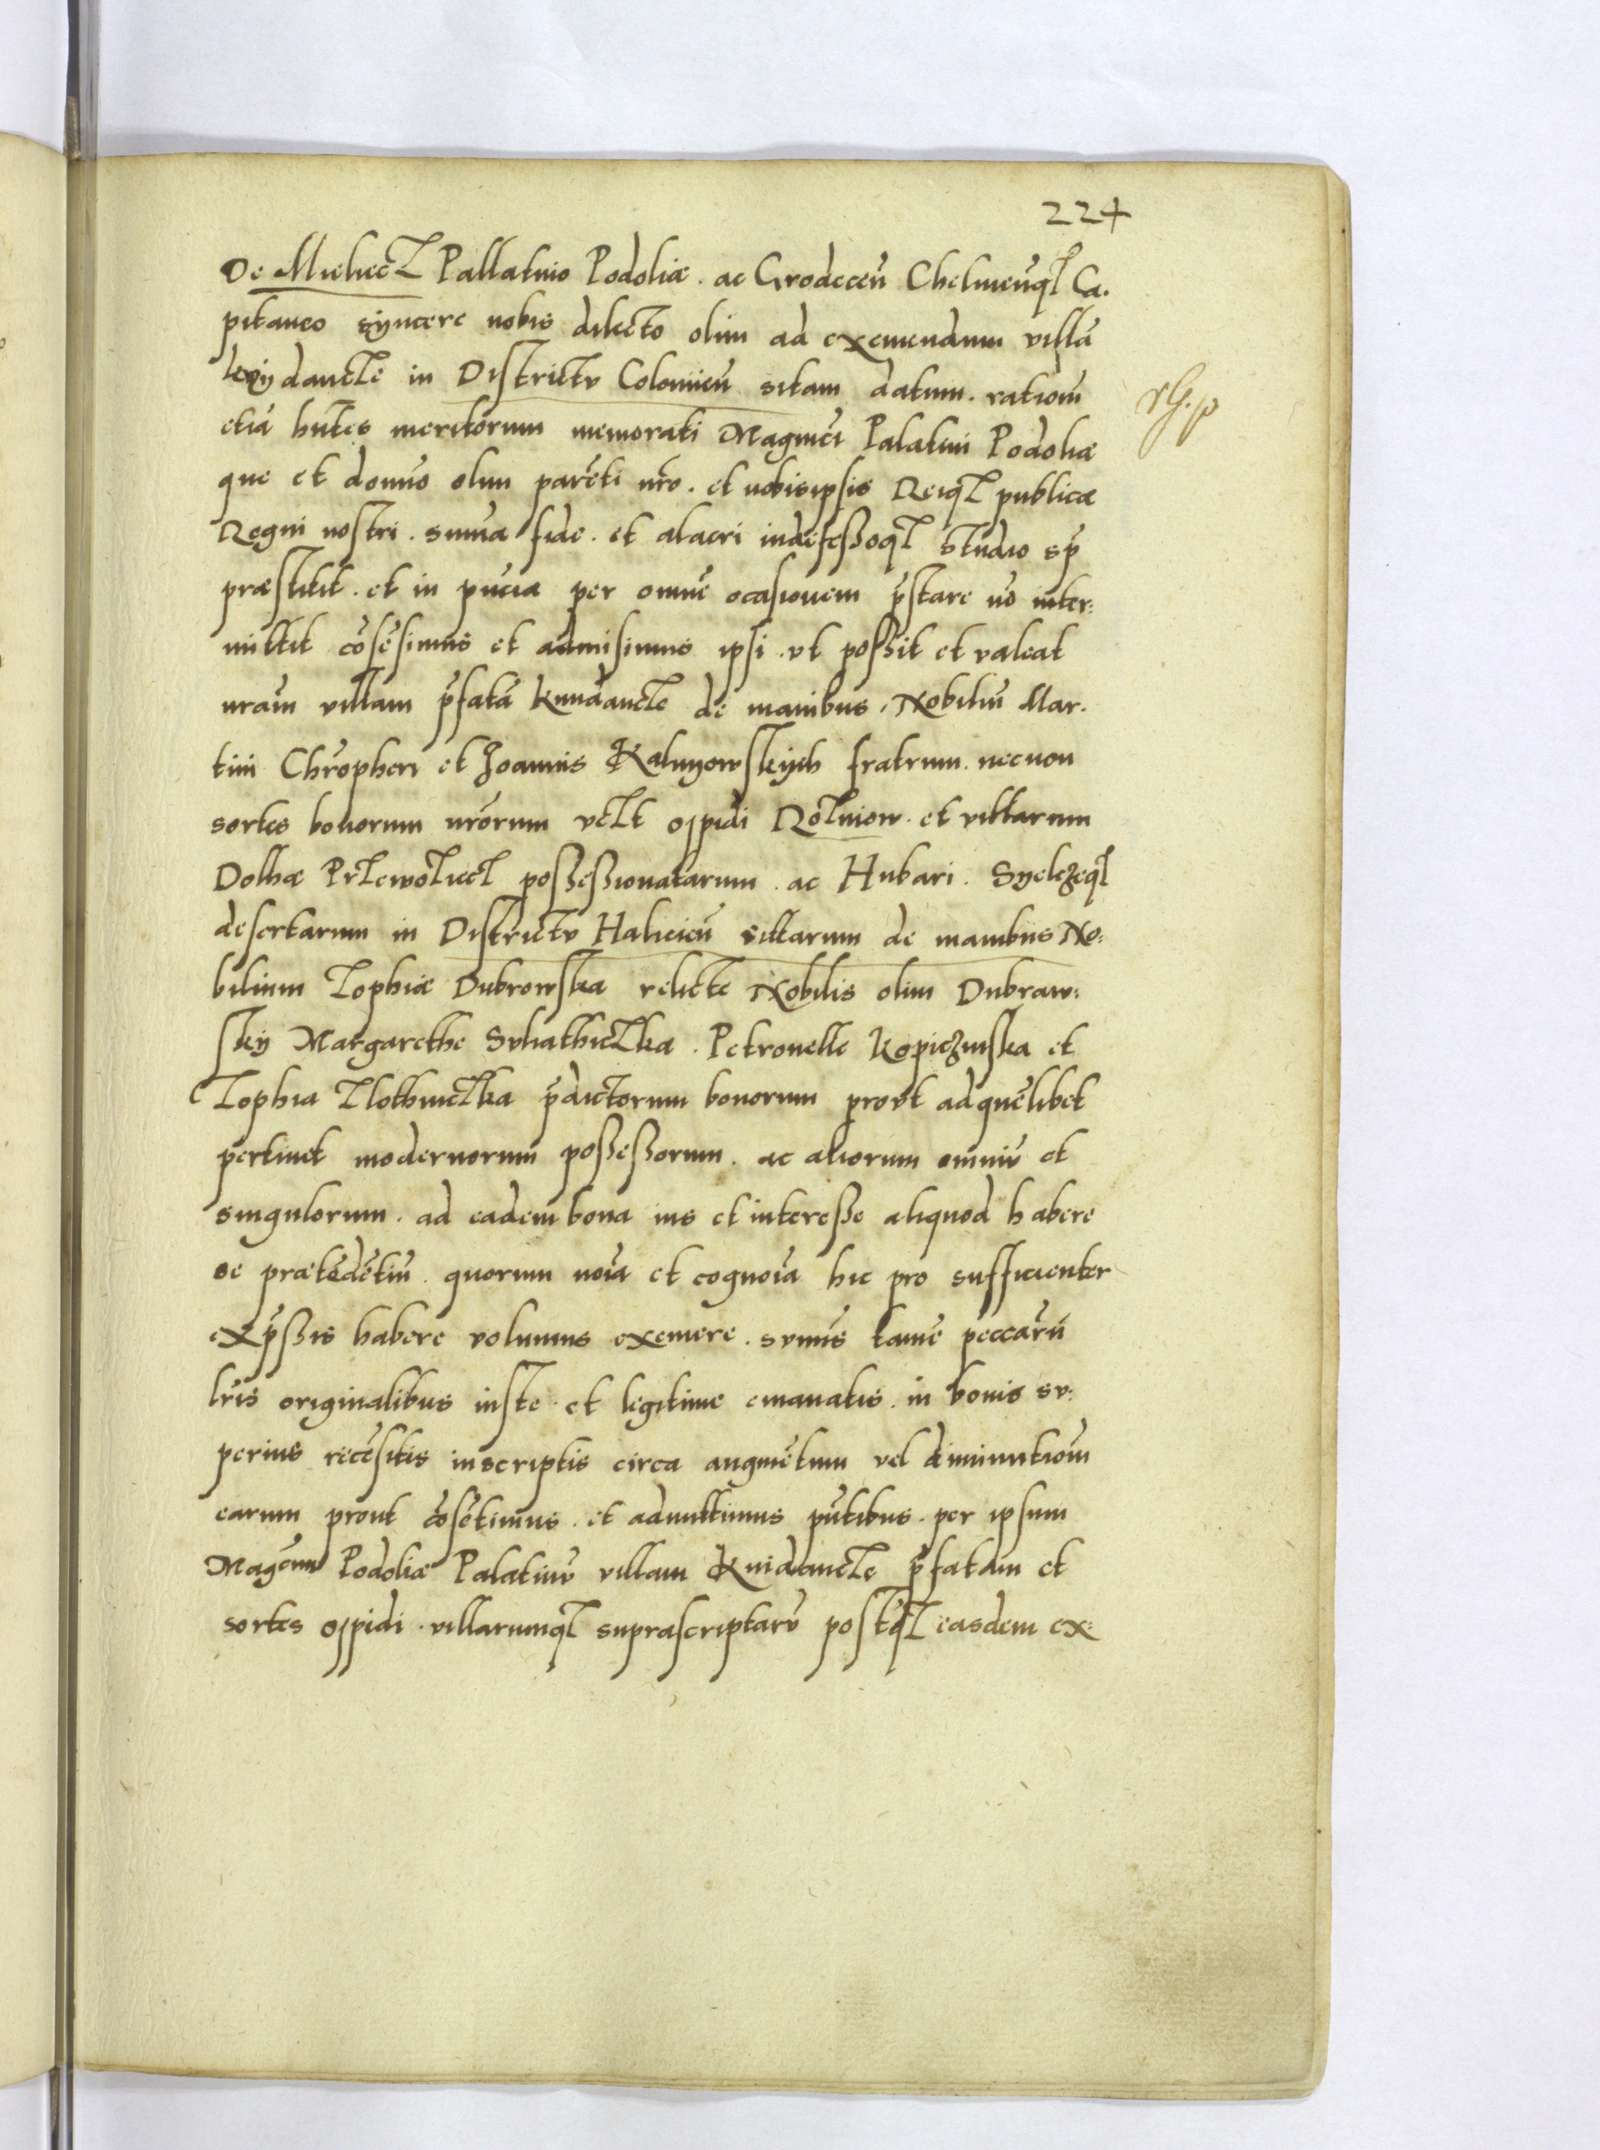 224
De Mieliecz Pallatino Podoliæ . ac Grodeceñ Chelmeñqz Ca.
pitaneo syncere nobis dilecto olim ad exemendum villā
dancze in Districtv Colomieñ sitam datum . rationē
etiā hñtes meritorum memorati Magnici Palatini Podoliæ
que et domino olim parēti nr̄o . et nobis ipsis Reiqz publicæ
Regni nostri . summa fide . et alacri indefeßoqz studio sp̄
præstitit . et in pn̄cia per omnē ocasionem pr̄stare nō inter:
mittit cōsēsimus et admisimus ipsi . vt poßit et valeat
nr̄am villam pr̄fatā Knidancze de manibus . Nobiliū Mar.
tini Chr̄opheri et Joannis Kalinyowskych fratrum . necnon
sortes bonorum nr̄orum vczt oppidi Rozniow . et villarum
Dolhæ Przewoziecz poßeßionatarum . ac Hubari . Syelezeqz
desertarum in Districtv Halicieñ sittarum de manibus No:
bilium Zophiæ Dubrowska relicte Nobilis olim Dubraw:
sky Margarethe Svhathiczka . Petronelle Kopiczinska et
Zophia Zlothniczka pr̄dictorum bonorum provt ad quēlibet
pertinet modernorum poßeßorum . ac aliorum omniū et
singulorum . ad eadem bona ius et intereße aliquod habere
se prætēdētiū . quorum noīa et cognoīa hic pro sufficienter
expr̄ßis habere volumus exemere . svmūs tamē peccariū
lr̄is originalibus iuste et legitime emanatis . in bonis sv:
perius recēsitis inscriptis circa augmētum vel diminutionē
earum prout cōsētimus . et admittimus pn̄tibus . per ipsum
Magcum Podoliæ Palatinū villam Knidancze pr̄fatam et
sortes oppidi . villarumqz suprascriptarū postqz easdem ex: